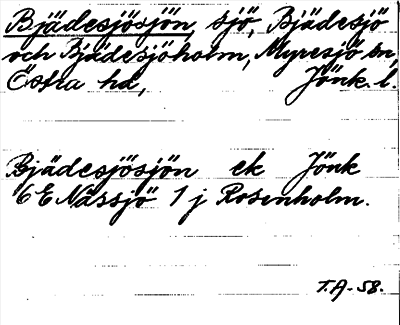 Bjädesjösjön, sjö, Bjädesjö
och Bjädesjöholm, Myresjö sn,
Östra hd, Jönk. l.
Bjädesjösjön ek Jönk
6E Nässjö 1 j Rosenholm.
T.A-58.